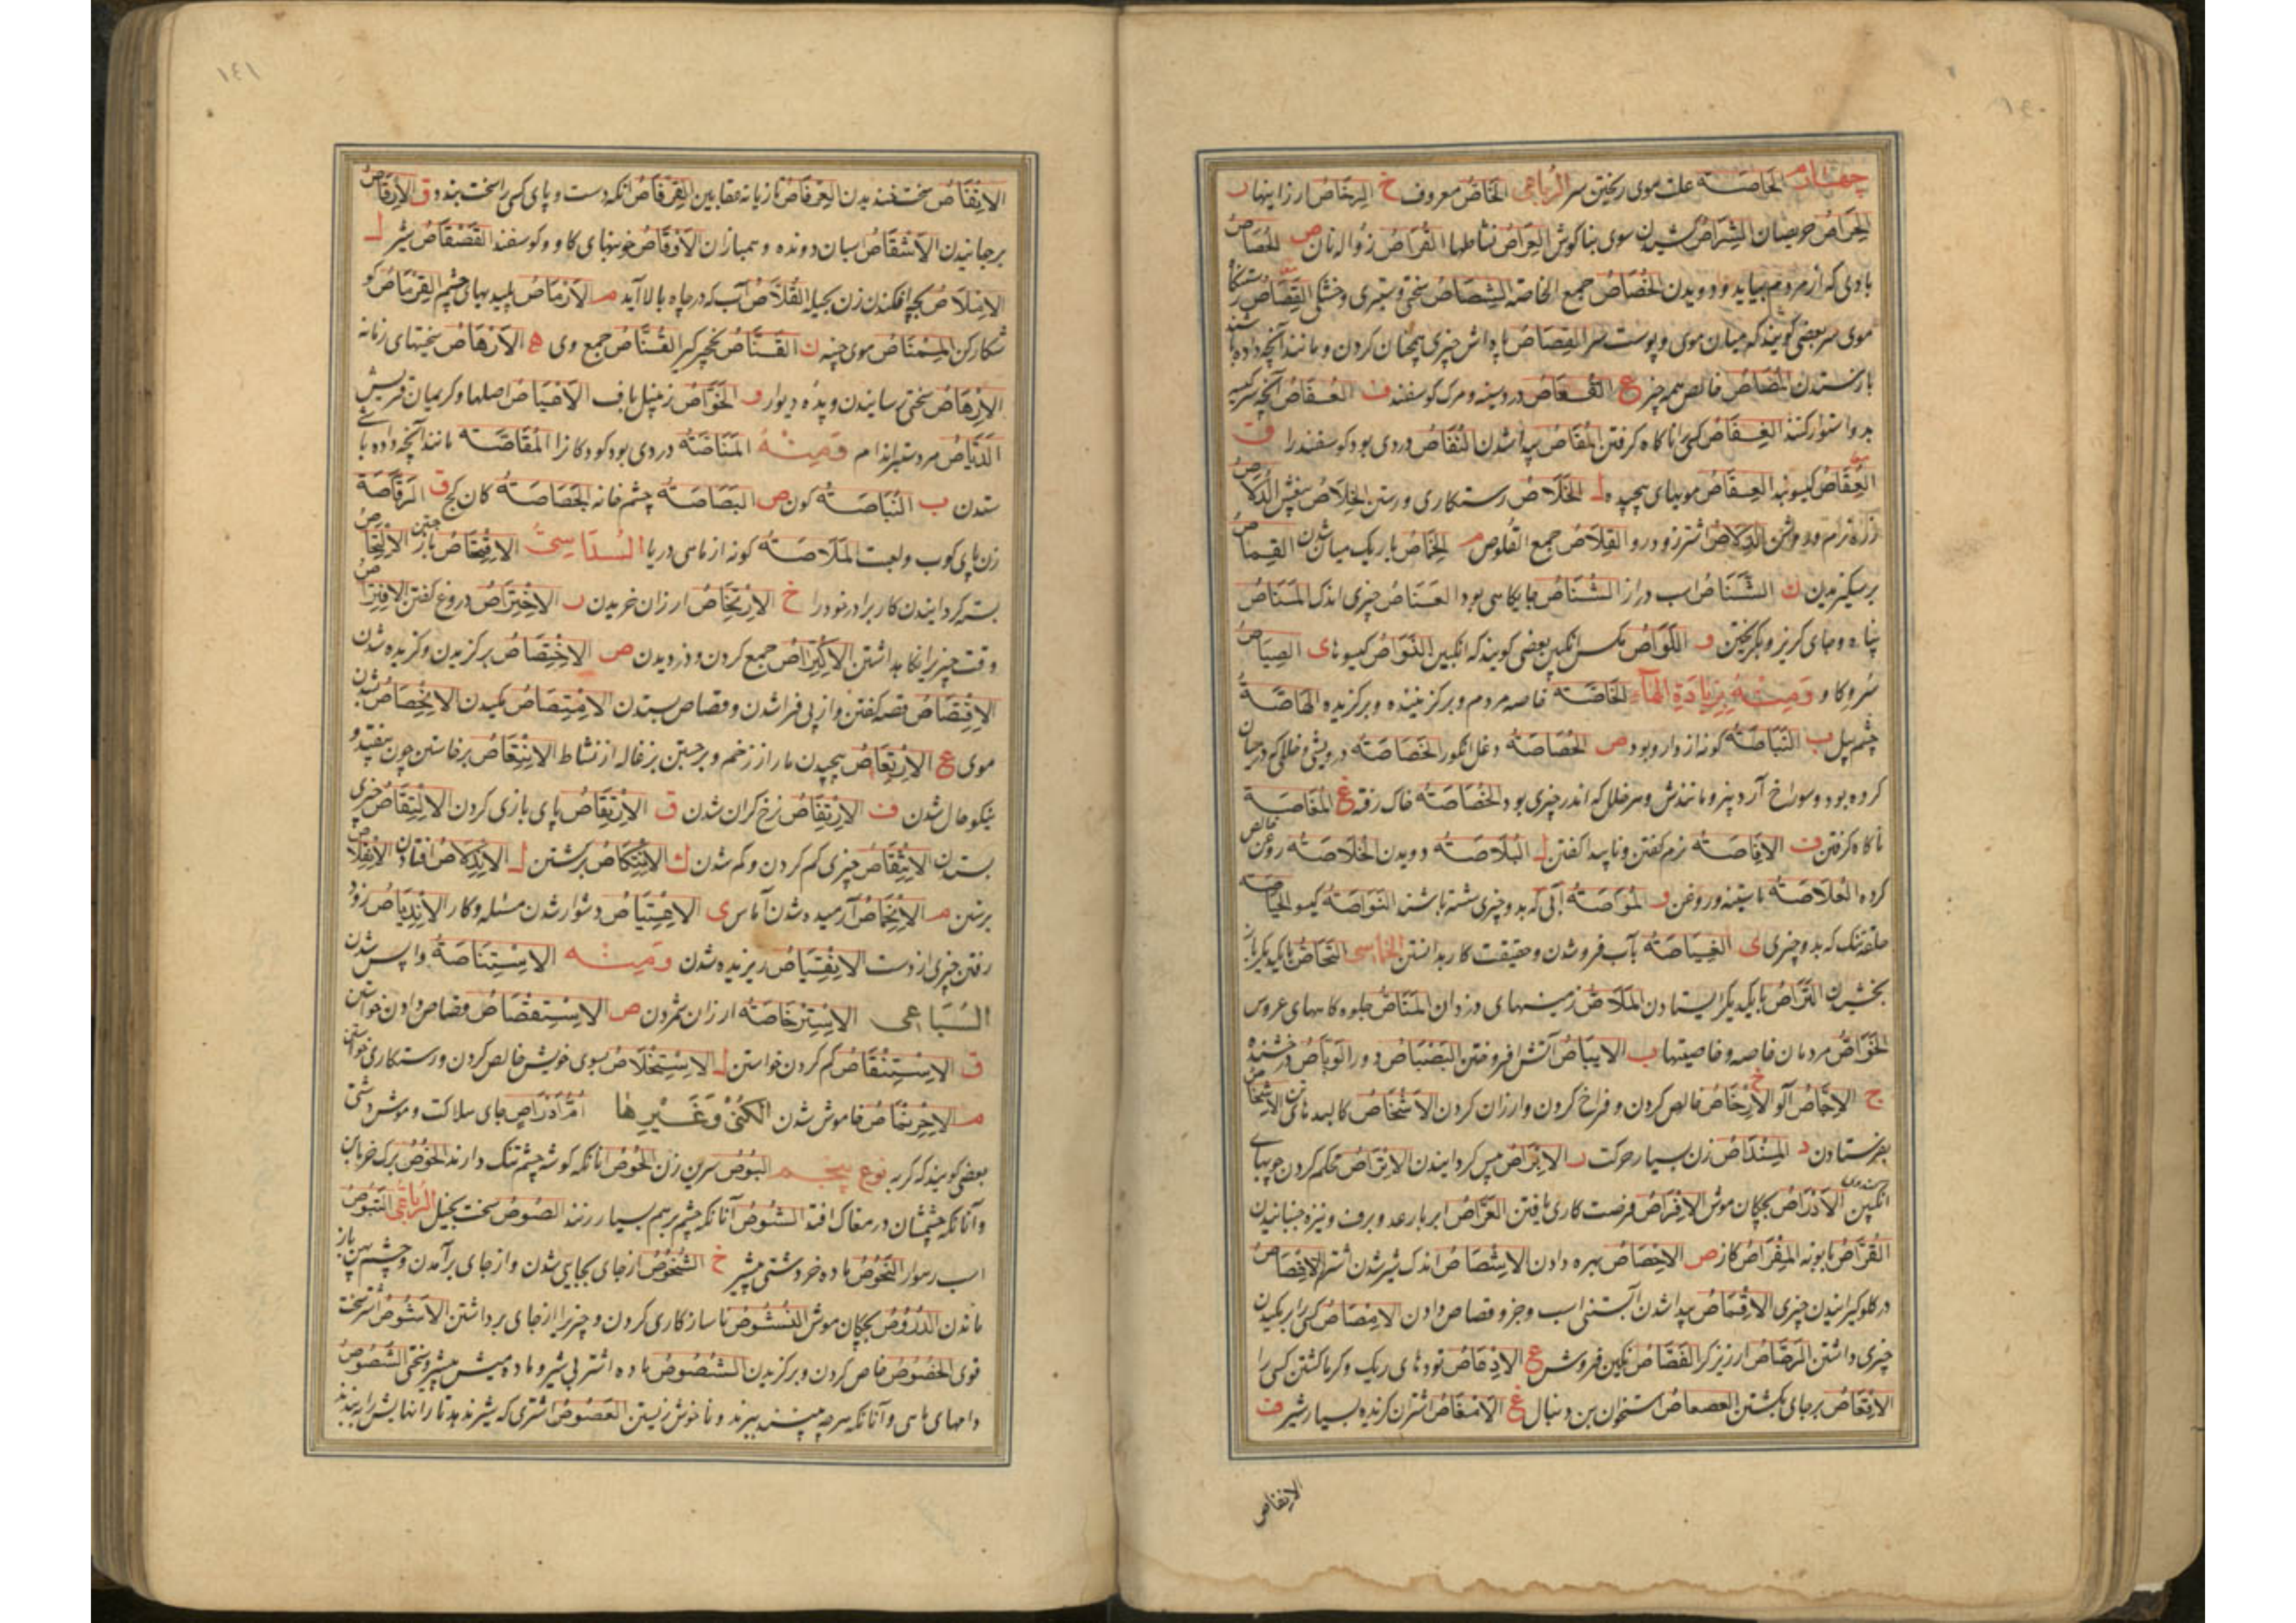 ١٤٠
چهارم الخاصة علت موی ریختن سر الرباعی الخاص معروف خ الرخاص ارزاینها ر
الحراص حریصان الشراص کشیدن سوی بناگوش العراص نشاطها القراص زواله نان ص الحصاص
بادی که از مردم بیاید و دویدن الخصاص جمع الخاصة الشصاص سختی و ستبری و خشکی القصاص رستنگاه
موی سر بعضی گویند که میان موی و پوست سر القصاص پاداش چیزی همچنان کردن و مانند آنچه داده باشند
بازستدن المصاص خالص همه چیز ع القعاص درد سینه و مرک کوسفند ف العفاص آنچه سر کیسه
بدو استوار کنند الغفاص کسی را ناکاه کرفتن المفاص پیدا شدن النفاص دردی بود کوسفند را ق
العقاص کیسوبند العقاص مویهای پیچیده ل الخلاص رستکاری و رستن الخلاص بیغش الدلاص
زره نرم و درخشان الدلاص اشتر زود رو القلاص جمع القلوص م الخماص باریک میان شدن القماص
برسکیزیدن ن الشناص اسب دراز الشناص جایگاهی بود العناص چیزی اندک المناص
پناه و جای کریز و بکریختن و اللواص مکس انکبین بعضی گویند که انکبین النواص کیسوها ی الصیاص
سرو کاو ومنه بزیادة الهاء الخاصة خاصه مردم و برکزیننده و برکزیده الهاصة
چشم پیل ب النباصة کونه از دارو بود ص الحصاصة دغل انکور الخصاصة درویشی و خللی که در میان
کرده بود و سوراخ آرد بیز و مانندش و هر خللی که اندر چیزی بود الخصاصة خاک رفته غ المغاصة
ناکاه کرفتن ف الافاصة نرم کفتن و ناپیدا کفتن ل البلاصة دویدن الخلاصة روغن خالص
کرده العلاصة و روغن و المواصة آبی که بدو چیزی شسته باشند النواصة کیسو الحیاصة
حلقه تنک که بدو چیزی ی الغیاصة بآب فرو شدن و حقیقت کار بدانستن الخماسی التحاص با یکدیکر باز
بخشیدن التراص با یکدیکر ایستادن الملاص زمینهای دزدان المناص جلوه کاههای عروس
الخواص مردمان خاصه و خاصیتها ب الایباص آتش افروختن البصباص دور الوباص درخشنده
ج الاجاص آلو خ الارخاص خالص کردن و فراخ کردن و ارزان کردن الاشخاص کالبدهای تن الاشخاص
بفرستادن د المنداص زن بسیار حرکت ر الابراص پیس کردانیدن الاتراص محکم کردن چوبهای
انکبین الادراص بچکان موش الافراص فرصت کاری یافتن العراص ابر با رعد و برق و نیزه جنبانیدن
القراص بابونه المقراص کاز ص الاحصاص بهره دادن الاشصاص اندک شیر شدن شتر الاغصاص
در کلو کیرانیدن چیزی الاقصاص پیدا شدن آبستنی اسب و جز و قصاص دادن الامصاص کسی را بر مکیدن
چیزی داشتن الرصاص ارزیز کر الفصاص نکین فروش ع الادعاص تودهای ریک و کرما کشتن کسی را
الاقعاص بر جای بکشتن العصعاص استخوان بن دنبال غ الامغاص اشتران کزیده بسیار شیر ف
الانفاص
١٤١
الانفاص سخت خندیدن العرفاص تازیانه عقابین القرفاص آنکه دست و پای کسی را سخت بندد ق الارقاص
برجهانیدن الاشقاص اسبان دونده و همبازان الاوقاص خونبهای کاو و کوسفند القصقاص شیر ل
الاملاص بچه افکندن زن بحیله القلاص آب که در چاه بالا آید م الارماص پلیدیهای چشم القرماص کو
شکار کن المنماص موی چینه ن القناص نخچیر کیر القناص جمع وی ه الارهاص سختیهای زمانه
الارهاص سختی رسانیدن و پده دیوار و الخواص زنبیل باف الاعیاص اصلها و کریمان قریش
الدیاص مرد ستبر اندام ومنه المناصة دردی بود کودکانرا المقاصة مانند آنچه داده باشی
ستدن ب النباصة کون ص البصاصة چشم خانه الخصاصة کان کج ق الرقاصة
زن پای کوب و لعبت الملاصة کونه از ماهی دریا السداسی الافتحاص باز جستن الالتحاص
بسته کردانیدن کار برادر خود را خ الارتخاص ارزان خریدن ر الاختراص دروغ کفتن الافتراص
وقت چیزی را نکاه داشتن الاکتراص جمع کردن و دزدیدن ص الاختصاص برکزیدن و کزیده شدن
الاقتصاص قصه کفتن و از پی فرا شدن و قصاص ستدن الامتصاص مکیدن الانحصاص بشدن
موی ع الارتعاص پیچیدن مار از زخم و برجستن بزغاله از نشاط الانتعاص برخاستن چون بیفتد و
نیکو حال شدن ف الارتفاص نرخ کران شدن ق الارتقاص پای بازی کردن الالتقاص چیزی
بستدن الانتقاص چیزی کم کردن و کم شدن ک الانتکاص برکشتن ل الاندلاص افتادن الانملاص
برستن م الانخماص آرمیده شدن آماس ی الاعتیاص دشوار شدن مسئله و کار الاندیاص زود
رفتن چیزی از دست الانقیاص ریزیده شدن ومنه الاستناصة واپس شدن
السباعی الاسترخاصة ارزان شمردن ص الاستقصاص قصاص دادن خواستن
ق الاستنقاص کم کردن خواستن ل الاستخلاص بسوی خویش خالص کردن و رستکاری خواستن
م الاخرنماص خاموش شدن الکنی وغیرها ام ادراص جای هلاکت و موش دشتی
بعضی گویند که کربه نوع پنجم البوص سرین زن الحوص آنانکه کوشه چشم تنک دارند الخوص برک خرما بن
و آنانکه چشمشان در مغاک افتد الشوص آنانکه چشم بر هم بسیار زنند الصوص سخت بخیل الرباعی القبوص
اسب رهوار النحوص ماده خر دشتی شیر خ الشخوص از جای بجایی شدن و از جای برآمدن و چشم پهن باز
ماندن الدروص بچکان موش النشوص ناسازکاری کردن و چیزی را از جای برداشتن الامصوص اشتر سخت
قوی الخصوص خاص کردن و برکزیدن الشصوص ماده اشتر بی شیر و ماده میش بیشیر و سختی الشصوص
دامهای ماهی و آنانکه هر چه بینند ببرند و ناخوش زیستن العصوص اشتری که شیر ندهد تا رانهایش را نبندند